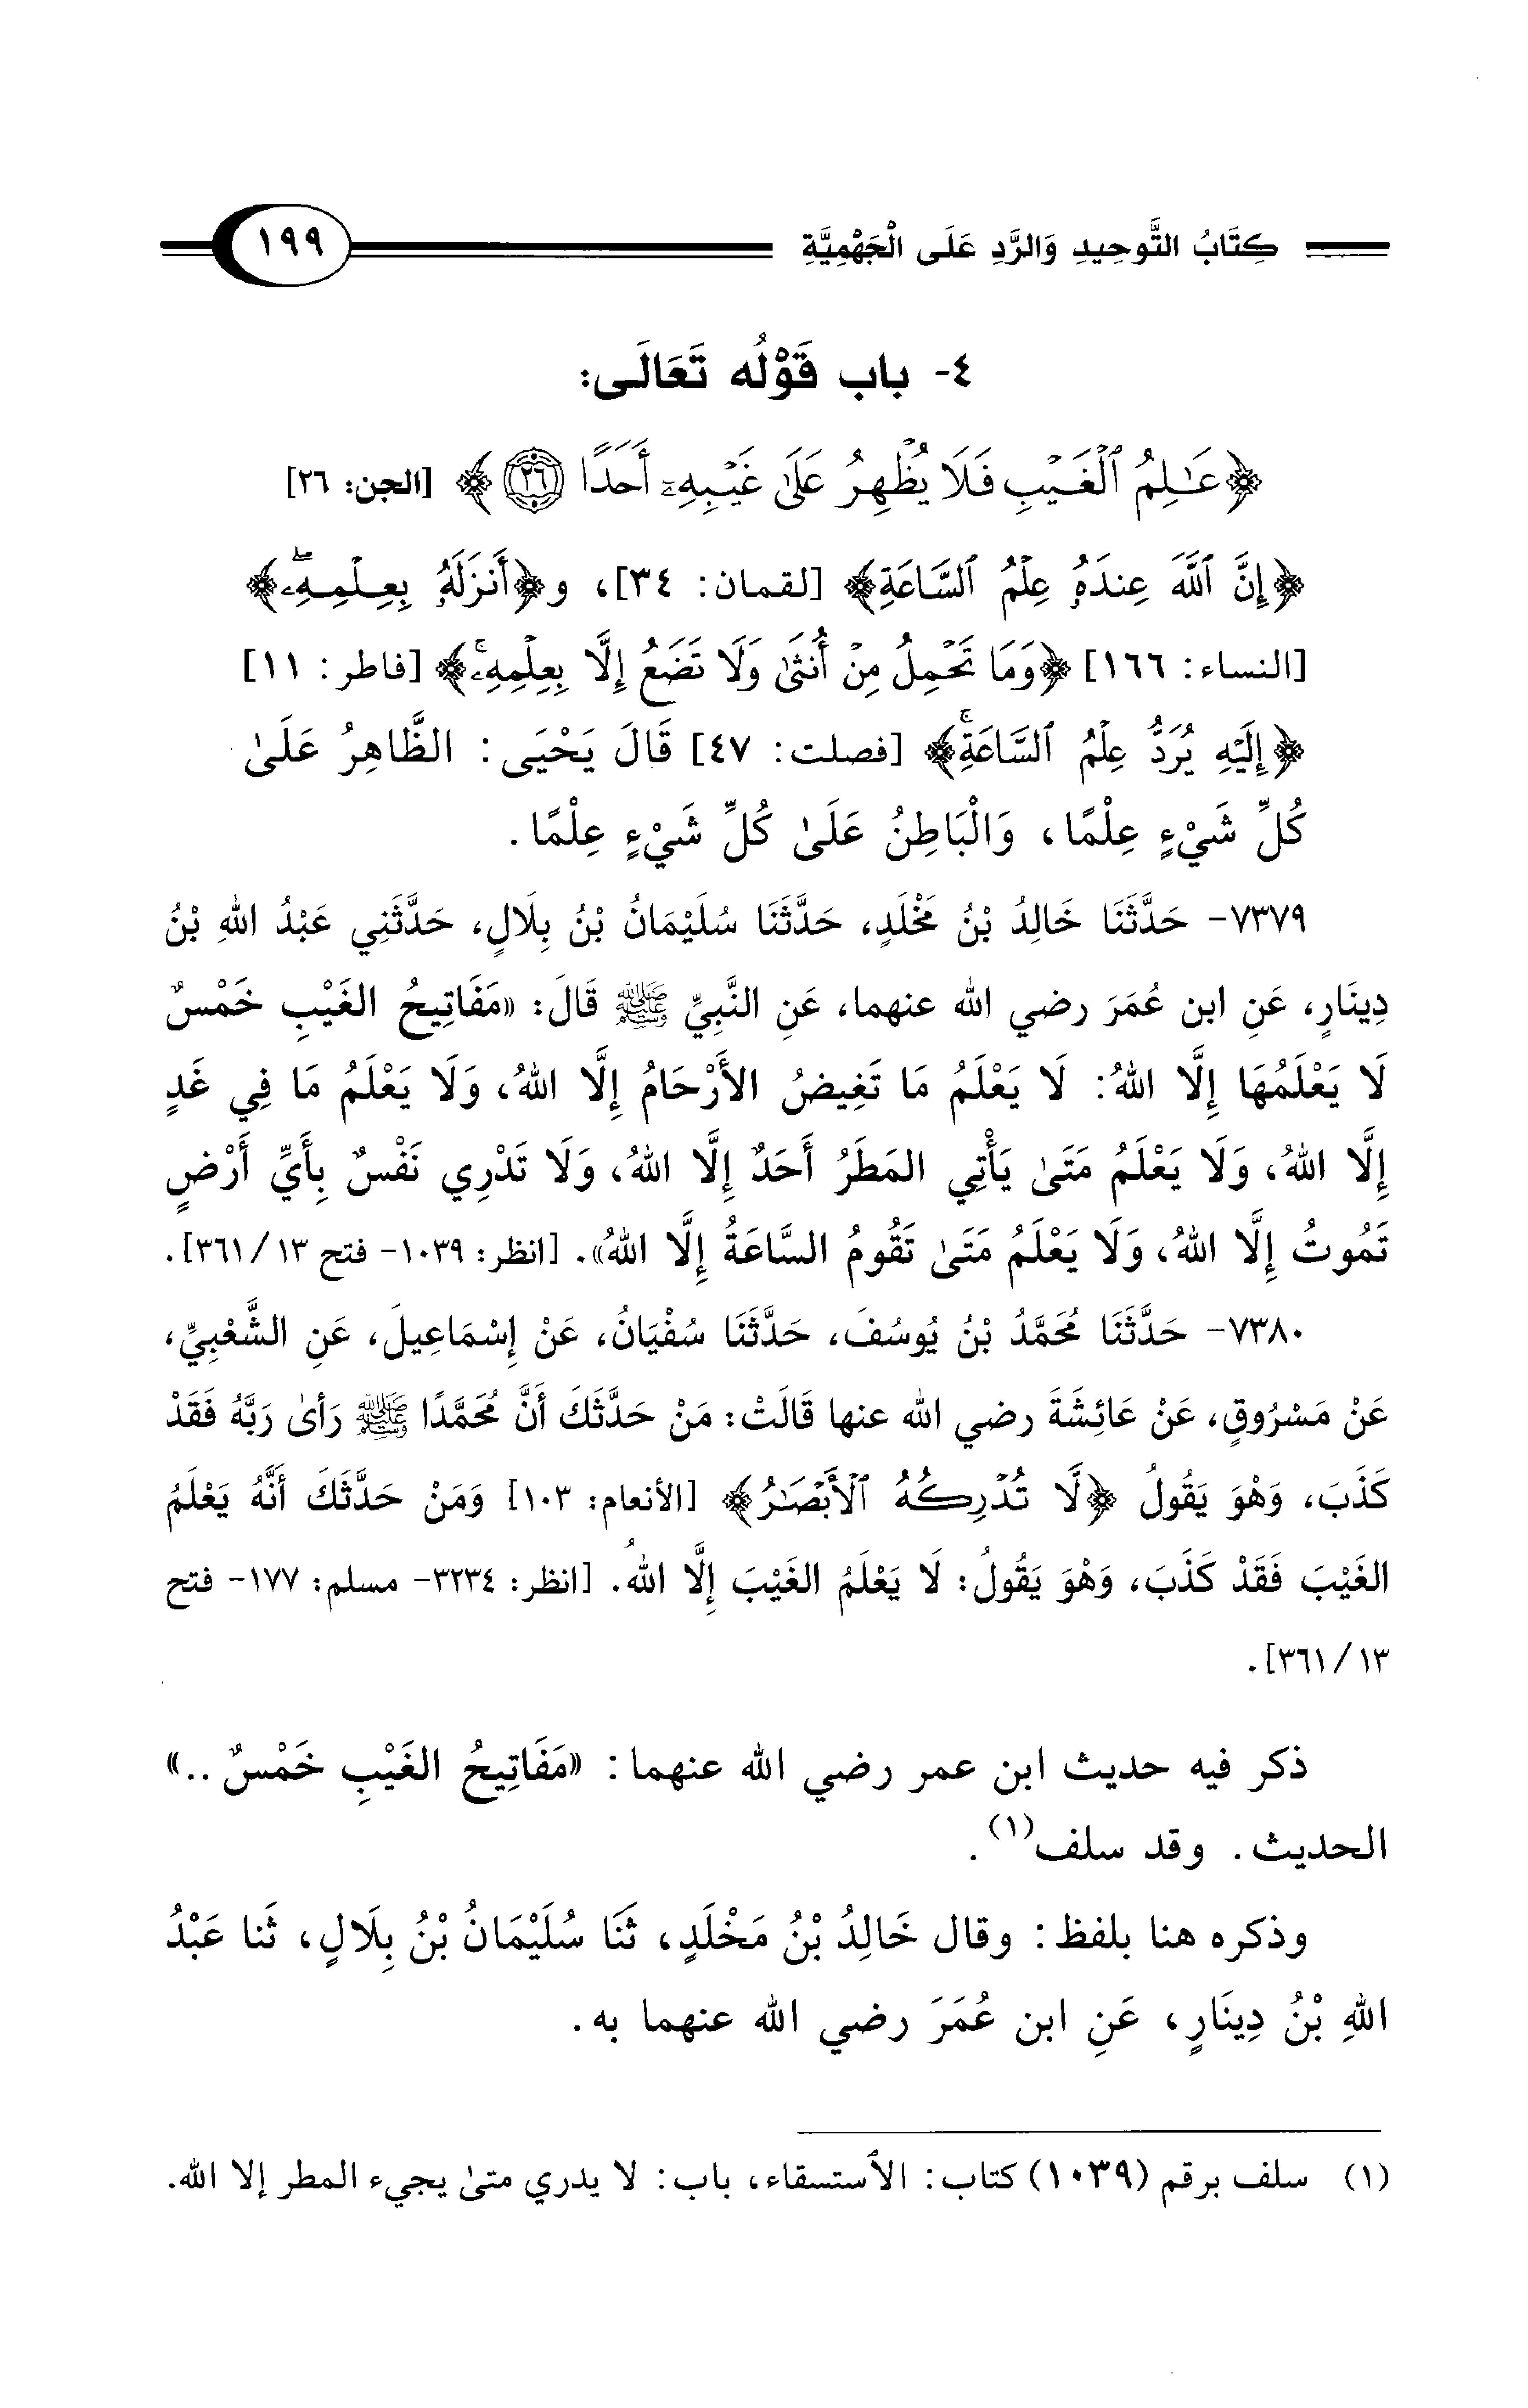 كِتَابُ التَّوحِيدِ وَالرَّدِ عَلَى الْجَهْمِيَّةِ ١٩٩
٤- باب قَوْلُه تَعَالَى:
﴿عَٰلِمُ ٱلْغَيْبِ فَلَا يُظْهِرُ عَلَىٰ غَيْبِهِۦٓ أَحَدًا ۝٢٦﴾ [الجن: ٢٦]
﴿إِنَّ ٱللَّهَ عِندَهُۥ عِلْمُ ٱلسَّاعَةِ﴾ [لقمان: ٣٤]، و﴿أَنزَلَهُۥ بِعِلْمِهِۦۖ﴾
[النساء: ١٦٦] ﴿وَمَا تَحْمِلُ مِنْ أُنثَىٰ وَلَا تَضَعُ إِلَّا بِعِلْمِهِۦۚ﴾ [فاطر: ١١]
﴿إِلَيْهِ يُرَدُّ عِلْمُ ٱلسَّاعَةِۚ﴾ [فصلت: ٤٧] قَالَ يَحْيَى: الظَّاهِرُ عَلَىٰ
كُلِّ شَيْءٍ عِلْمًا، وَالْبَاطِنُ عَلَىٰ كُلِّ شَيْءٍ عِلْمًا.
٧٣٧٩- حَدَّثَنَا خَالِدُ بْنُ مَخْلَدٍ، حَدَّثَنَا سُلَيْمَانُ بْنُ بِلَالٍ، حَدَّثَنِي عَبْدُ اللهِ بْنُ
دِينَارٍ، عَنِ ابن عُمَرَ رضي الله عنهما، عَنِ النَّبِيِّ ﷺ قَالَ: «مَفَاتِيحُ الغَيْبِ خَمْسٌ
لَا يَعْلَمُهَا إِلَّا اللهُ: لَا يَعْلَمُ مَا تَغِيضُ الأَرْحَامُ إِلَّا اللهُ، وَلَا يَعْلَمُ مَا فِي غَدٍ
إِلَّا اللهُ، وَلَا يَعْلَمُ مَتَىٰ يَأْتِي المَطَرُ أَحَدٌ إِلَّا اللهُ، وَلَا تَدْرِي نَفْسٌ بِأَيِّ أَرْضٍ
تَمُوتُ إِلَّا اللهُ، وَلَا يَعْلَمُ مَتَىٰ تَقُومُ السَّاعَةُ إِلَّا اللهُ». [انظر: ١٠٣٩- فتح ١٣/ ٣٦١].
٧٣٨٠- حَدَّثَنَا مُحَمَّدُ بْنُ يُوسُفَ، حَدَّثَنَا سُفْيَانُ، عَنْ إِسْمَاعِيلَ، عَنِ الشَّعْبِيِّ،
عَنْ مَسْرُوقٍ، عَنْ عَائِشَةَ رضي الله عنها قَالَتْ: مَنْ حَدَّثَكَ أَنَّ مُحَمَّدًا ﷺ رَأىٰ رَبَّهُ فَقَدْ
كَذَبَ، وَهْوَ يَقُولُ ﴿لَّا تُدْرِكُهُ ٱلْأَبْصَٰرُ﴾ [الأنعام: ١٠٣] وَمَنْ حَدَّثَكَ أَنَّهُ يَعْلَمُ
الغَيْبَ فَقَدْ كَذَبَ، وَهْوَ يَقُولُ: لَا يَعْلَمُ الغَيْبَ إِلَّا اللهُ. [انظر: ٣٢٣٤- مسلم: ١٧٧- فتح
١٣/ ٣٦١].
ذكر فيه حديث ابن عمر رضي الله عنهما: «مَفَاتِيحُ الغَيْبِ خَمْسٌ..»
الحديث. وقد سلف(١).
وذكره هنا بلفظ: وقال خَالِدُ بْنُ مَخْلَدٍ، ثَنَا سُلَيْمَانُ بْنُ بِلَالٍ، ثَنا عَبْدُ
اللهِ بْنُ دِينَارٍ، عَنِ ابن عُمَرَ رضي الله عنهما به.
(١) سلف برقم (١٠٣٩) كتاب: الأستسقاء، باب: لا يدري متىٰ يجيء المطر إلا الله.